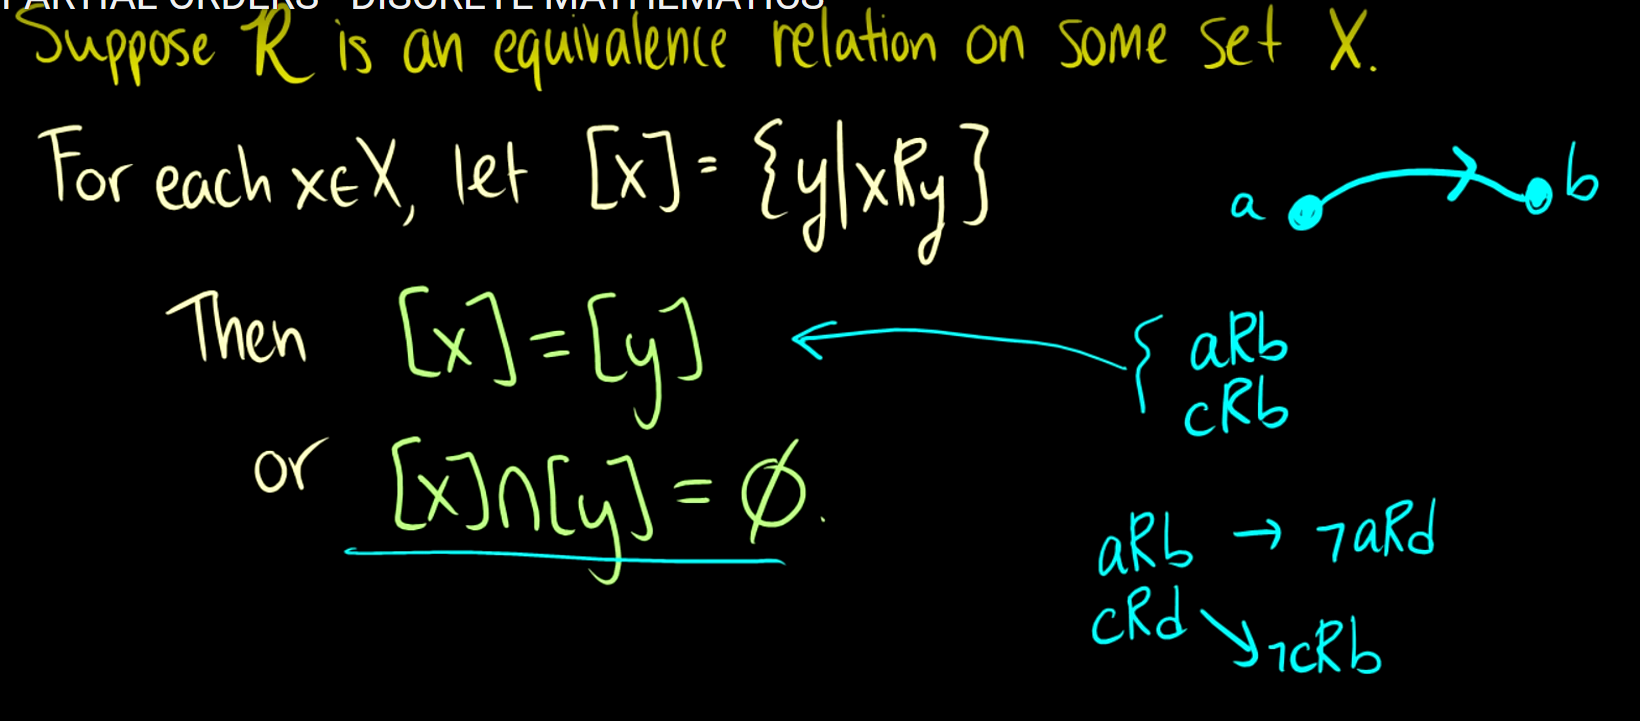 PARTIAL ORDERS - DISCRETE MATHEMATICS
Suppose R is an equivalence relation on some set X.
For each x∈X, let [x] = {y|xRy}
a b
Then [x]=[y] ← { aRb
cRb
or [x]∩[y] = ∅.
aRb → ¬aRd
cRd ↘ ¬cRb